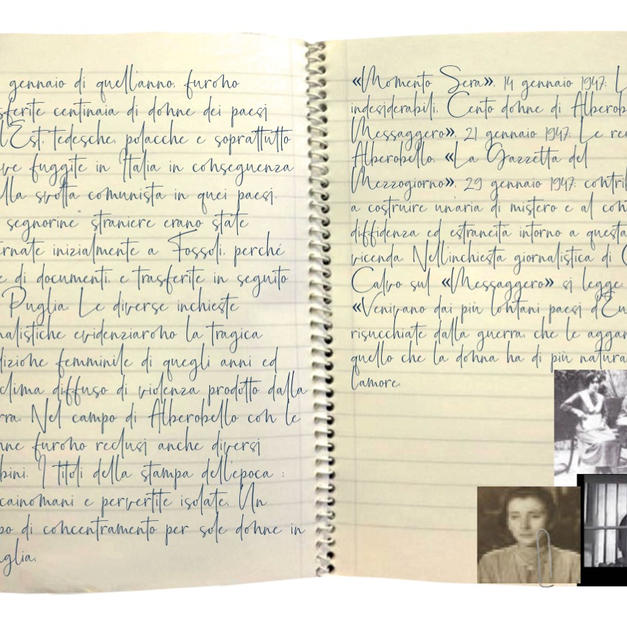 gennaio di quell'anno, furono
sferite centinaia di donne dei paesi
l'Est: tedesche, polacche e soprattutto
ve fuggite in Italia in conseguenza
lla svolta comunista in quei paesi.
segnorine" straniere erano state
ernate inizialmente a Fossoli, perché
e di documenti, e trasferite in seguito
Puglia. Le diverse inchieste
nalistiche evidenziarono la tragica
dizione femminile di quegli anni ed
clima diffuso di violenza prodotto dalla
rra. Nel campo di Alberobello con le
nne furono reclusi anche diversi
bini. I titoli della stampa dell'epoca :
cainomani e pervertite isolate. Un
po di concentramento per sole donne in
glia,
«Momento Sera», 14 gennaio 1947; L
indesiderabili. Cento donne di Alberob
Messaggero», 21 gennaio 1947; Le rec
Alberobello, «La Gazzetta del
Mezzogiorno», 29 gennaio 1947; contrib
a costruire un'aria di mistero e al con
diffidenza ed estraneità intorno a questa
vicenda. Nell'inchiesta giornalistica di G
Calvo sul «Messaggero» si legge
«Venivano dai più lontani paesi d'Eu
risucchiate dalla guerra, che le aggan
quello che la donna ha di più natura
l'amore.